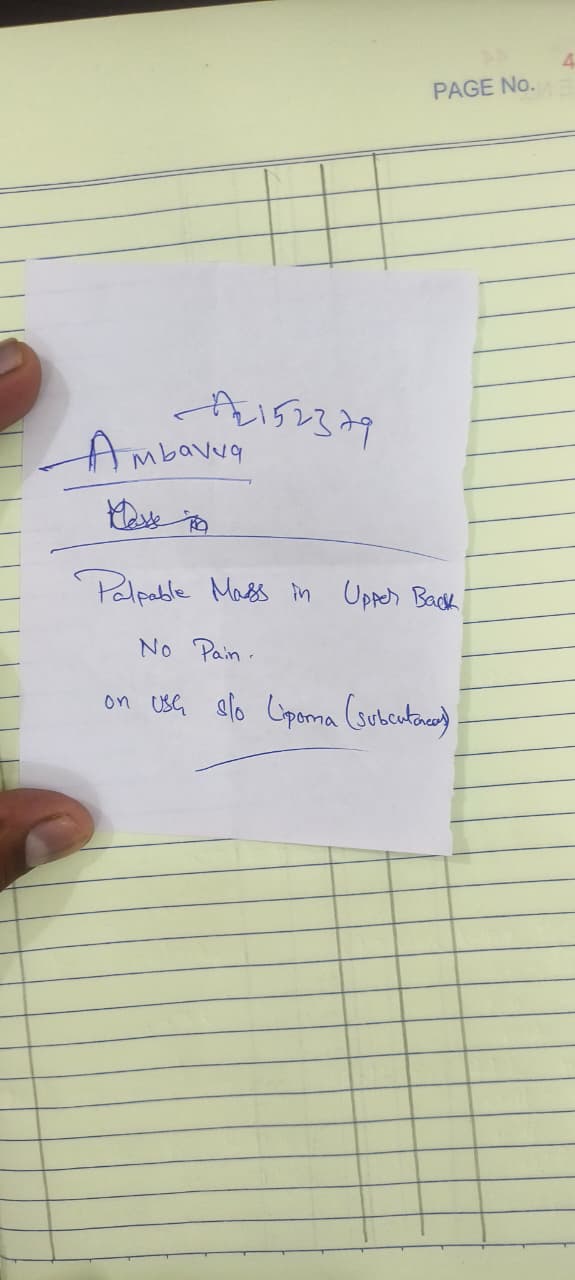 PAGE No.
4
A2152379
Ambavva
Palpable Mass in Upper Back
No Pain.
on USG s/o Lipoma (subcutaneous)